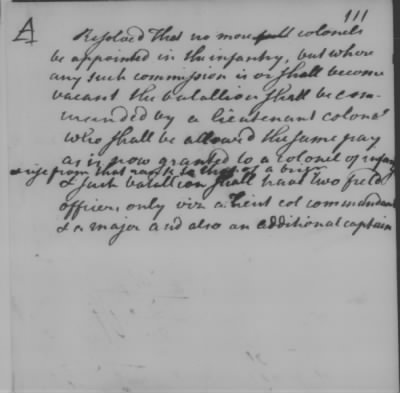 111
A
Resolved That no more full colonels
be appointed in the infantry, but where
any such commission is or shall become
vacant the batallion shall be com-
manded by a lieutenant colonel
who shall be allowed the same pay
as is now granted to a colonel of infany
& rise from that rank to that of a brigr
& such batallion shall have two field
officers only viz a lieut col commandant
& a major and also an additional captain